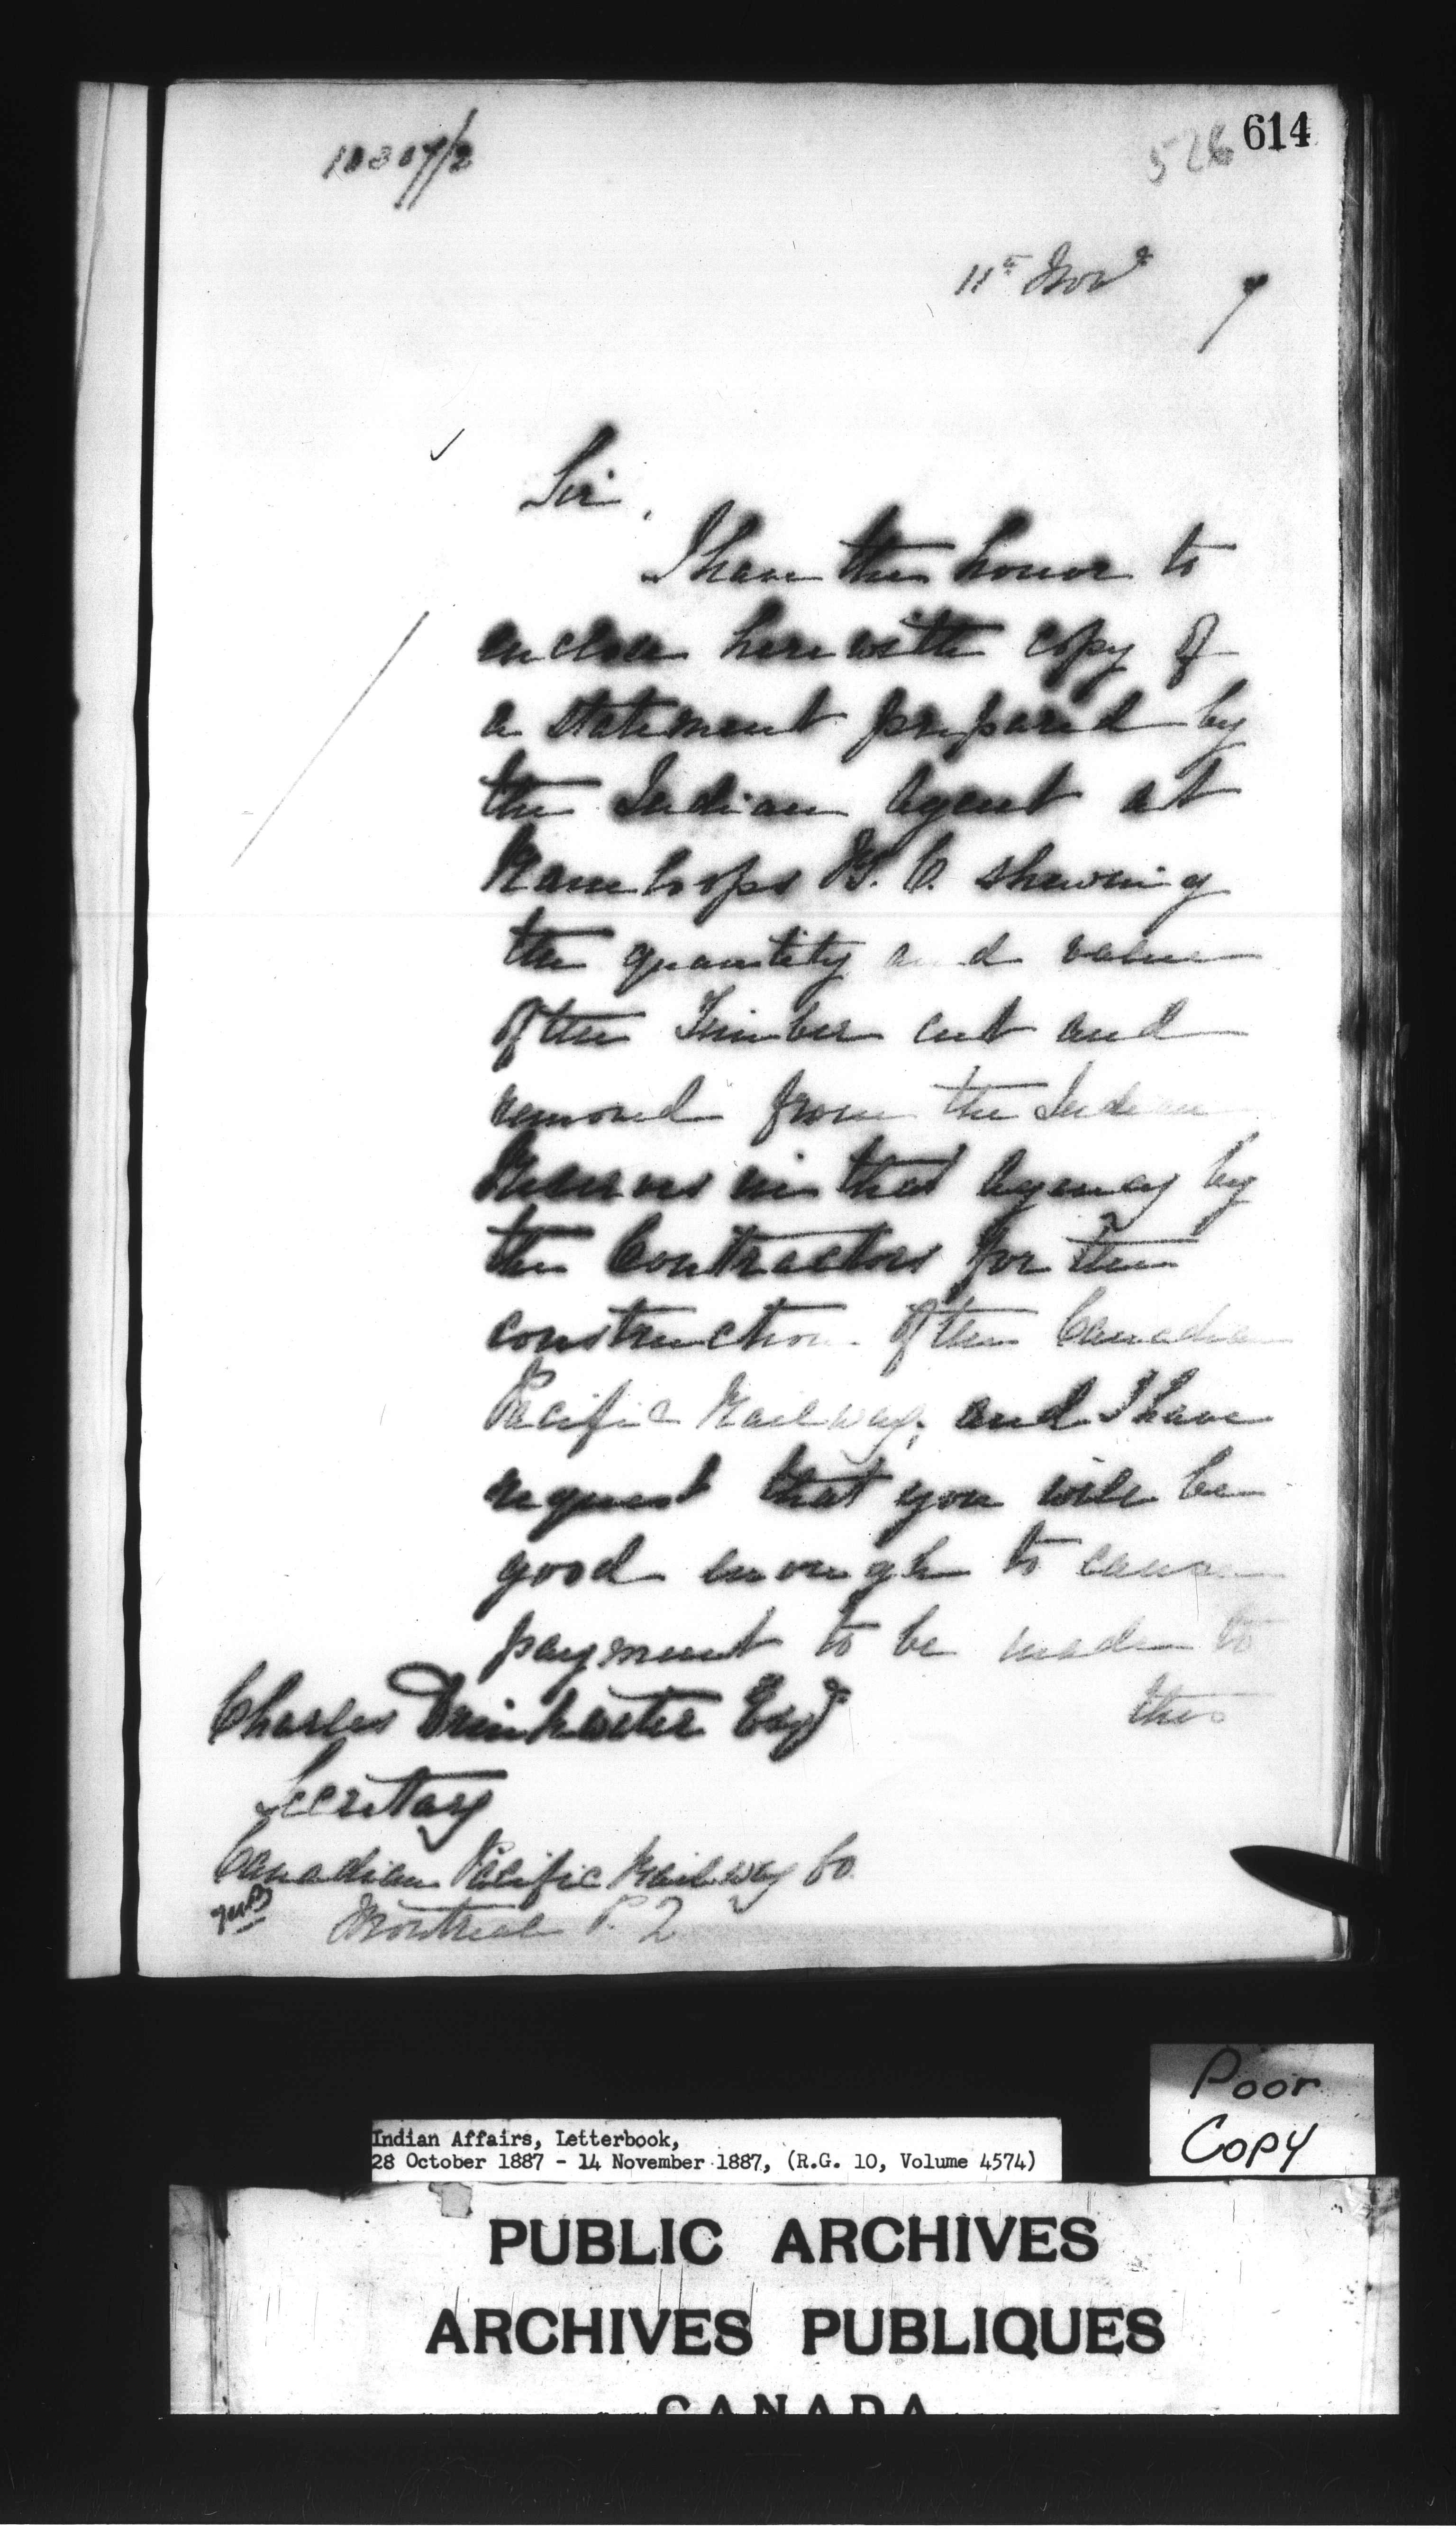 614
11th Novr 7
Sir,
I have the honor to
enclose herewith copy of
a statement prepared by
the Indian Agent at
Kamloops B. C. shewing
the quantity and value
of the Timber cut and
removed from the Indian
Reserves in that Agency by
the Contractors for the
construction of the Canadian
Pacific Railway; and I have
request that you will be
good enough to cause
payment to be made to
this
Charles Drinkwater Esqr
Secretary
Canadian Pacific Railway Co.
Montreal P. Q
Poor
Copy
Indian Affairs, Letterbook,
28 October 1887 - 14 November 1887, (R.G. 10, Volume 4574)
PUBLIC ARCHIVES
ARCHIVES PUBLIQUES
CANADA